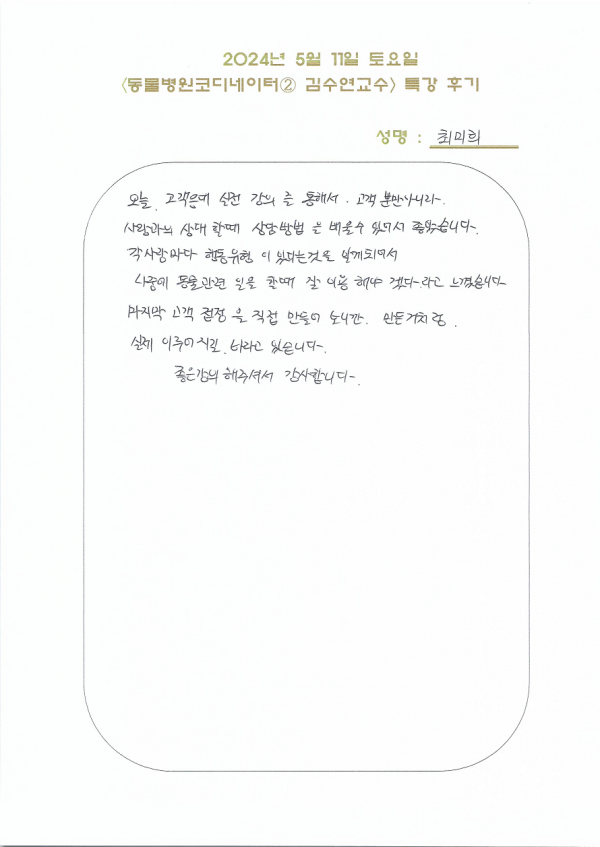 2024년 5월 11일 토요일
<동물병원코디네이터② 김수연교수> 특강 후기
성명 : 최미희
오늘, 고객응대 실전 강의 를 통해서. 고객 뿐만아니라.
사람과의 상대 할때 상담방법 을 배울수 있어서 좋았습니다.
각사람마다 행동유형 이 있다는것을 알게되면서
나중에 동물관련 일을 할때 잘 이용 해야 겠다.라고 느꼈습니다
마지막 고객 접점 을 직접 만들어 보니깐. 만든거처럼.
실제 이루어지길. 바라고 있습니다.
좋은강의 해주셔서 감사합니다.